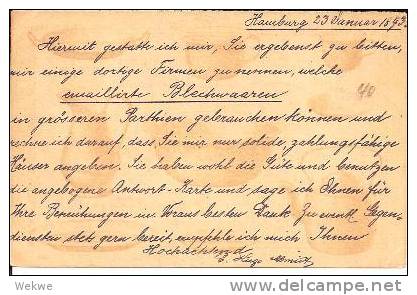 Hamburg 23 Januar 1893.
Hiermit gestatte ich mir, Sie ergebenst zu bitten,
mir einige dortige Firmen zu nennen, welche
emaillirte Blechwaaren
40
in grösseren Parthien gebrauchen können und
sehe ich darauf, dass Sie mir nur solide, zahlungsfähige
Häuser angeben. Sie haben wohl die Güte und benutzen
die angebogene Antwort-Karte und sage ich Ihnen für
Ihre Bemühungen im Voraus besten Dank. Zu eventl. Gegen-
diensten stets gern bereit, empfehle ich mich Ihnen
Hochachtend
Hugo
Wekwo
delcampe.net